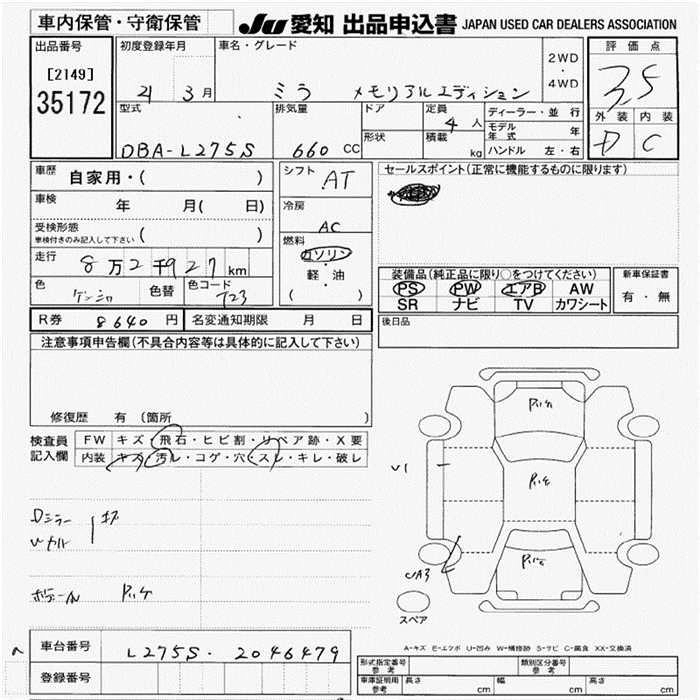 車内保管・守衛保管
JU 愛知 出品申込書 JAPAN USED CAR DEALERS ASSOCIATION
出品番号
[2149]
35172
初度登録年月
21 3月
車名・グレード
ミラ メモリアルエディション
2WD
・
4WD
評価点
3.5
外装 内装
D C
型式
DBA-L275S
排気量
660 CC
ドア
形状
定員
4人
積載 kg
ディーラー・並行
モデル年式 年
ハンドル 左・右
車歴 自家用・( )
車検 年 月( 日)
受検形態
車検付きのみ記入して下さい ( )
走行 8万2千927km
色
色替
色コード
T23
シフト
AT
冷房
AC
燃料
ガソリン
・
軽・油
( )
セールスポイント(正常に機能するものに限ります)
装備品(純正品に限り○をつけてください)
PS PW エアB AW
SR ナビ TV カワシート
新車保証書
有・無
R券 8640円
名変通知期限 月 日
後日品
注意事項申告欄(不具合内容等は具体的に記入して下さい)
修復歴 有(箇所 )
検査員
記入欄
FW キズ・飛石・ヒビ割・リペア跡・X要
内装 キズ・汚レ・コゲ・穴・スレ・キレ・破レ
Dミラー
ボデール
U1
UA3
スペア
車台番号 L275S-2046479
登録番号
A-キズ E-エクボ U-凹み W-補修跡 S-サビ C-腐食 XX-交換済
形式指定番号
参考
類別区分番号
参考
車庫証明用
参考
長さ cm
幅 cm
高さ cm